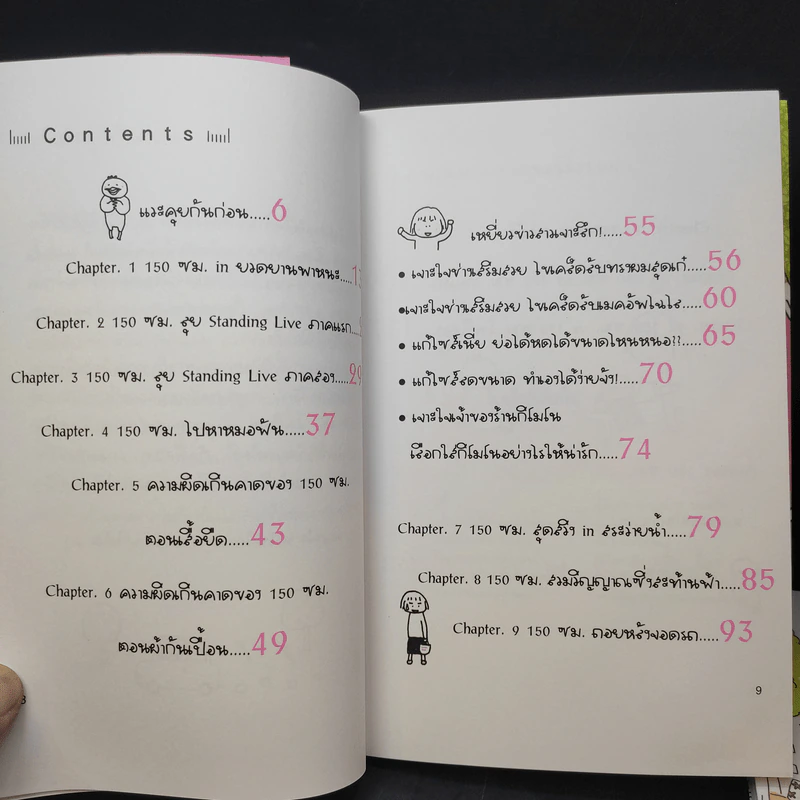 Contents
แวะคุยกันก่อน.....6
Chapter. 1 150 ซม. in ยวดยานพาหนะ.....1
Chapter. 2 150 ซม. ลุย Standing Live ภาคแรก....
Chapter. 3 150 ซม. ลุย Standing Live ภาคสอง.....29
Chapter. 4 150 ซม. ไปหาหมอฟัน.....37
Chapter. 5 ความผิดเกินคาดของ 150 ซม.
ตอนเสื้อยืด.....43
Chapter. 6 ความผิดเกินคาดของ 150 ซม.
ตอนผ้ากันเปื้อน.....49
8
เหยี่ยวข่าวสาวเจาะลึก!.....55
• เจาะใจช่างเสริมสวย ไขเคล็ดลับทรงผมสุดเก๋.....56
•เจาะใจช่างเสริมสวย ไขเคล็ดลับเมคอัพไฉไล.....60
• แก้ไซส์เนี่ย ย่อได้หดได้ขนาดไหนหนอ??.....65
• แก้ไซส์ลดขนาด ทำเองได้ง่ายจัง!.....70
• เจาะใจเจ้าของร้านกิโมโน
เลือกใส่กิโมโนอย่างไรให้น่ารัก.....74
Chapter. 7 150 ซม. สุดสวิง in สระว่ายน้ำ.....79
Chapter. 8 150 ซม. สวมวิญญาณซิ่งสะท้านฟ้า.....85
Chapter. 9 150 ซม. ถอยหลังจอดรถ.....93
9